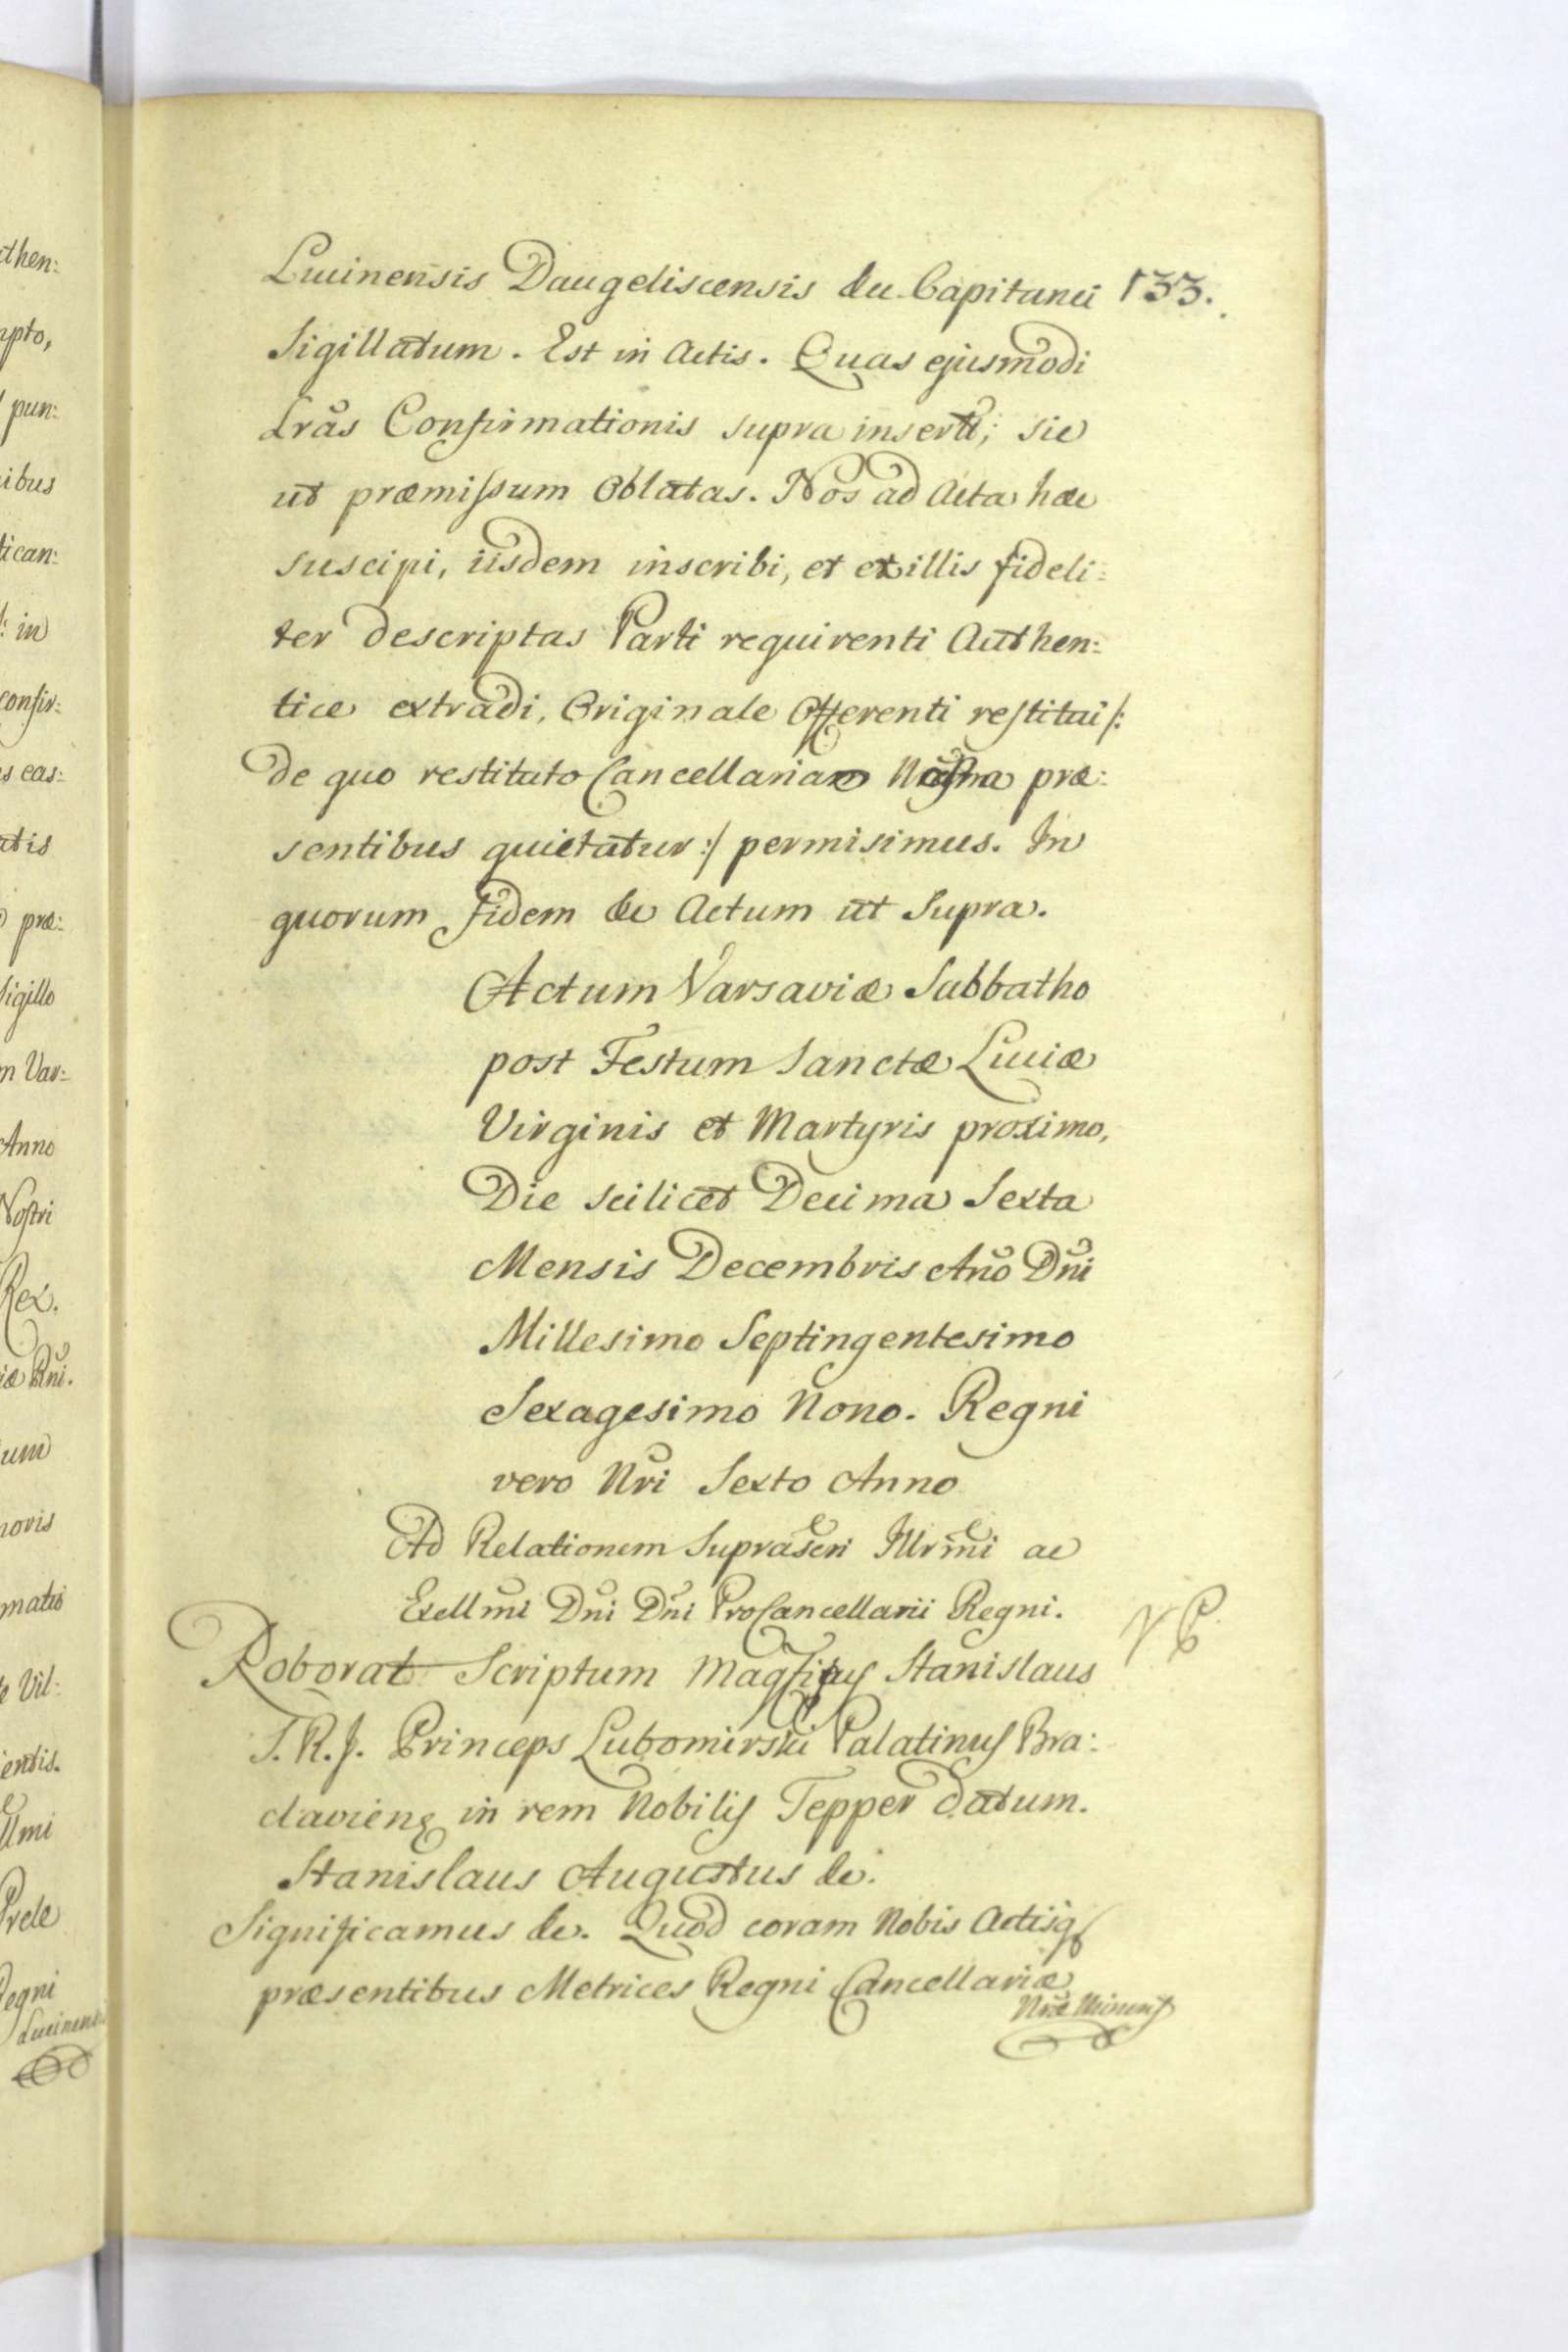 Lucinensis Daugeliscensis &c Capitanei 133.
Sigillatum. Est in Actis. Quas ejusmodi
Lrãs Confirmationis supra insertã; sic
ut præmissum Oblatas. Nos ad Acta hæc
suscipi, iisdem inscribi, et ex illis fideli:
ter descriptas Parti requirenti Authen:
tice extradi, Originale Offerenti restitui /:
de quo restituto Cancellaria præ:
sentibus quietatur :/ permisimus. In
quorum fidem &c Actum ut Supra.
Actum Varsaviæ Sabbatho
post Festum Sanctæ Luciæ
Virginis et Martyris proximo,
Die scilicet Decima Sexta
Mensis Decembris Añõ Dñi
Millesimo Septingentesimo
Sexagesimo Nono. Regni
vero Nri Sexto Anno
Ad Relationem Suprascri Illrmi ac
Excllmi Dñi Dñi ProCancellarii Regni.
Roborat Scriptum Stanislaus
S. R. J. Princeps Lubomirski Palatinus Bra:
clavien in rem Nobilis Tepper datum.
Stanislaus Augustus &c.
Significamus &c. Quod coram Nobis Actisq
præsentibus Metrices Regni Cancellariæ
Nræ Minoris
ithen:
mpto,
pun:
ibus
tican:
: in
confir:
s eas:
atis
præ:
Sigillo
m Var:
Anno
Nostri
Rex.
iæ Rñi.
um
noris
matio
e Vil:
entis.
llmi
Regni
Lucinens